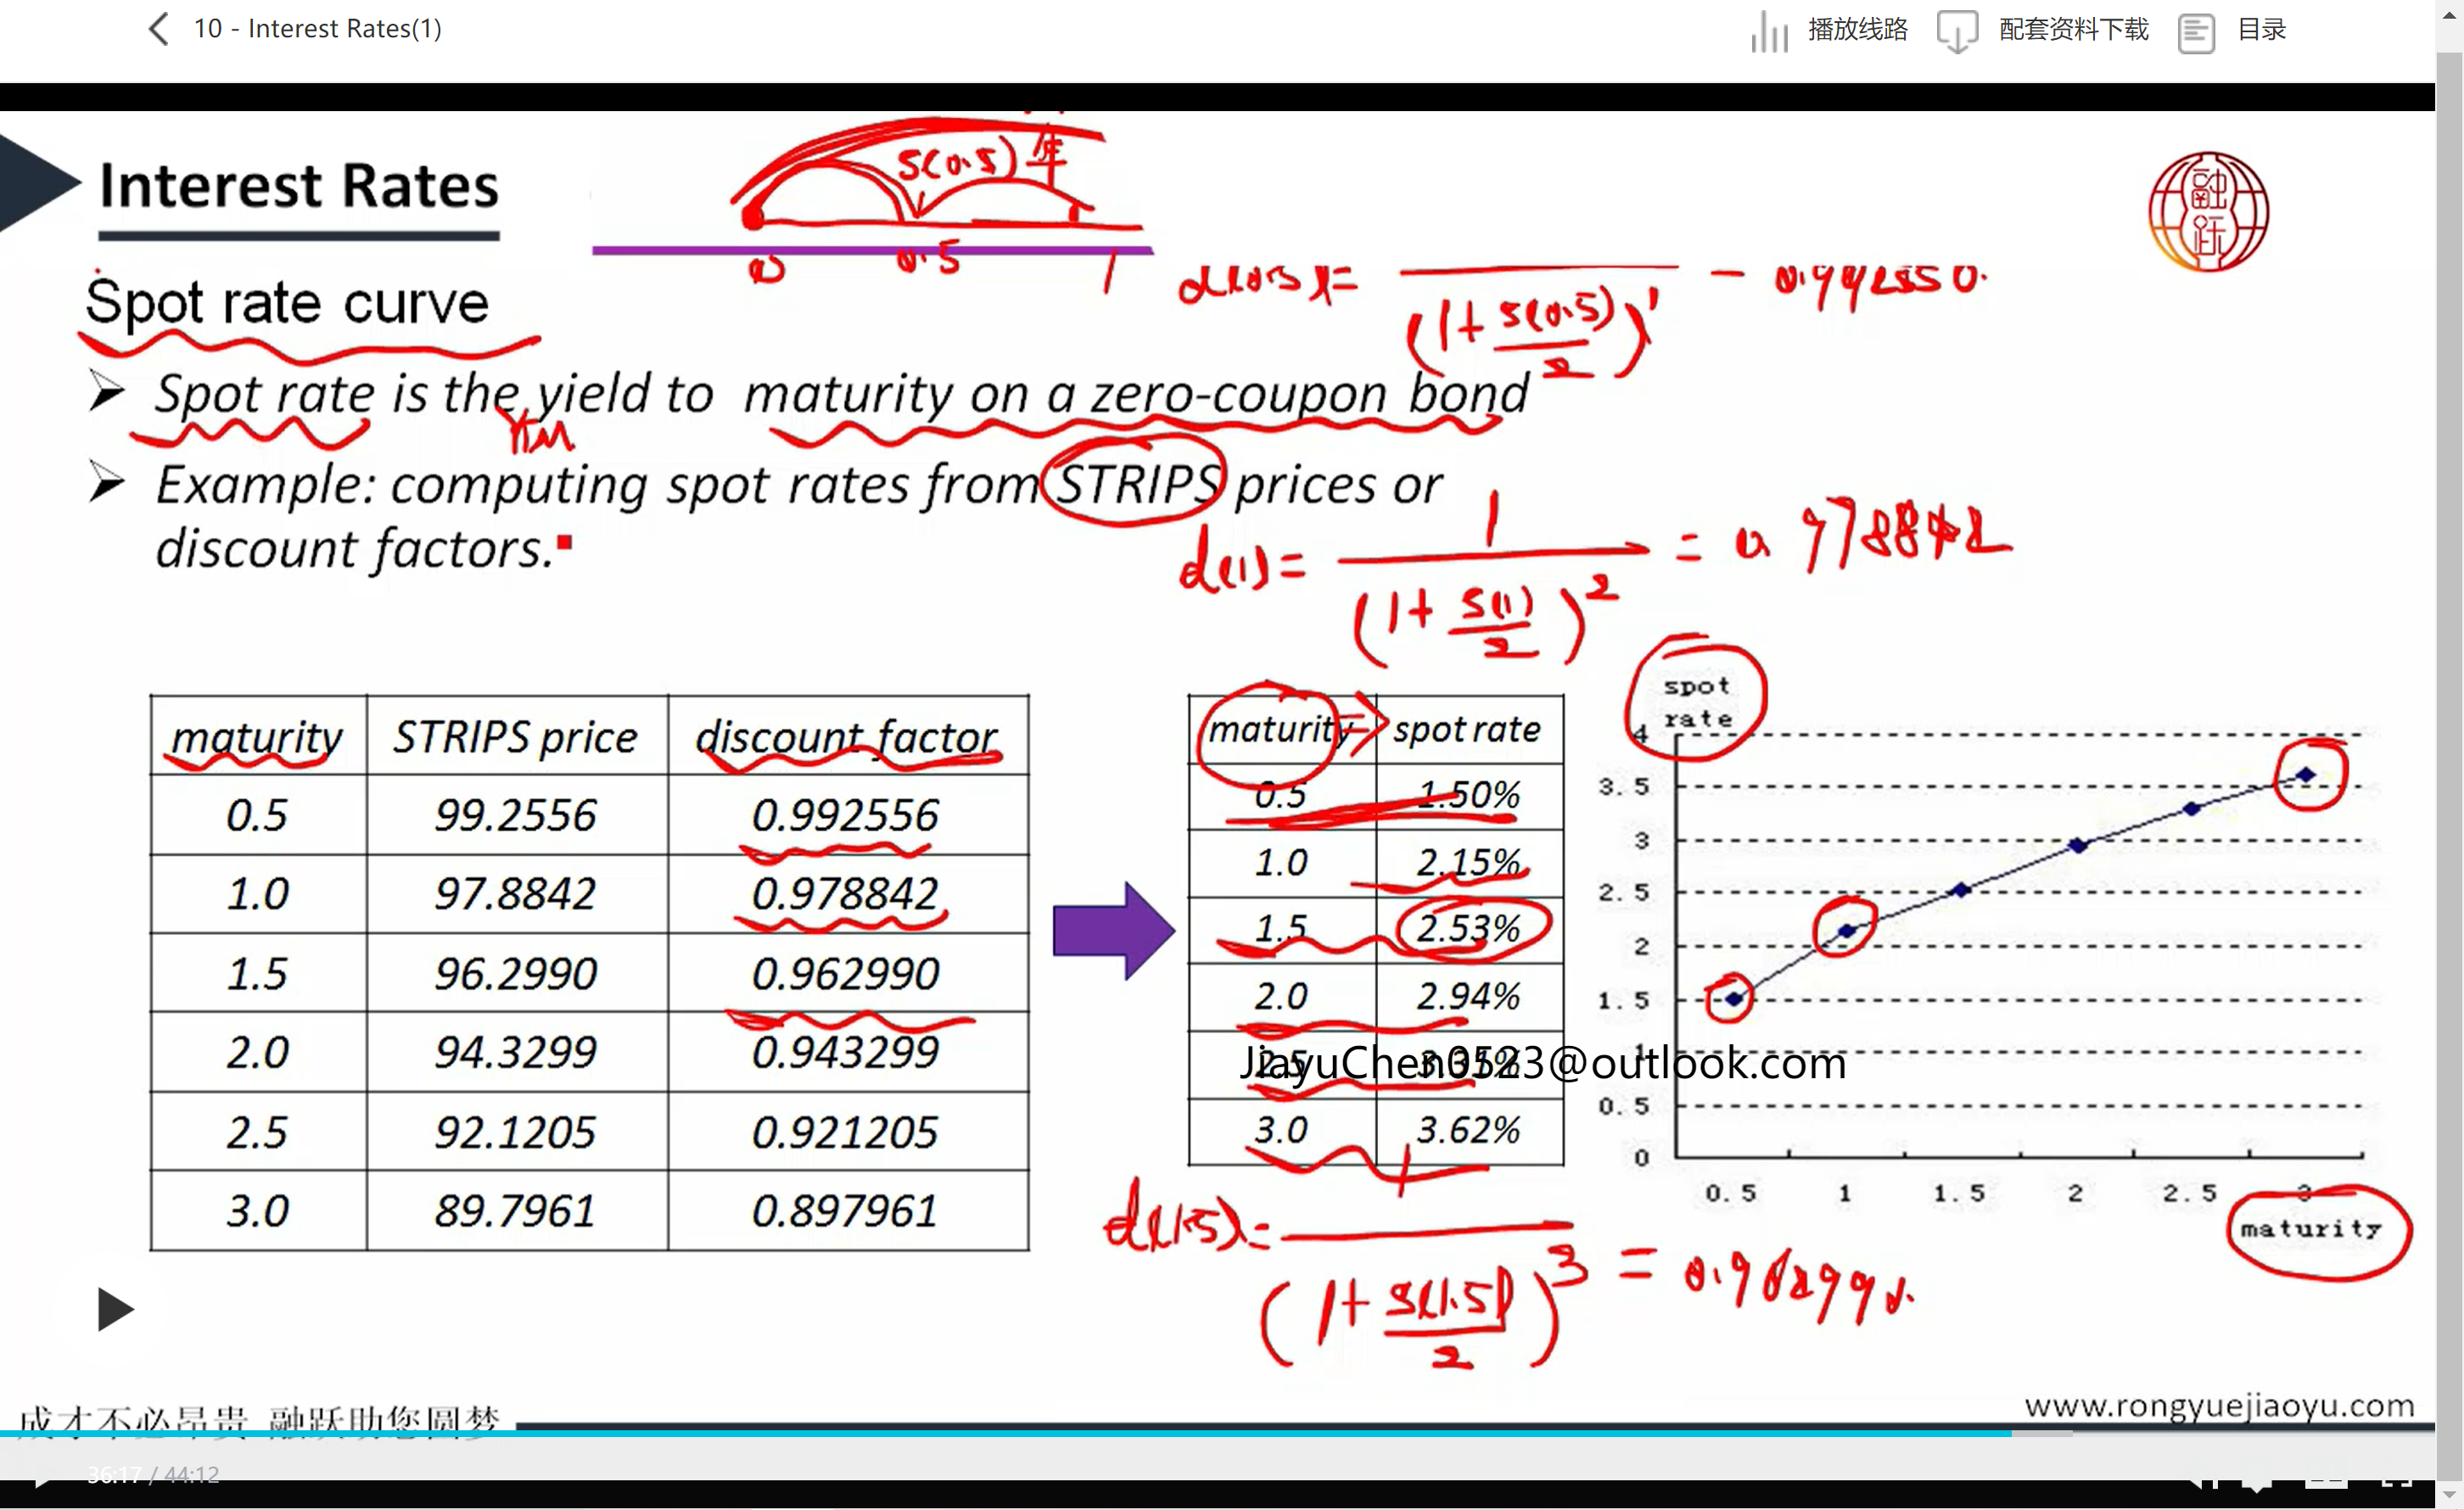 10 - Interest Rates(1)
播放线路
配套资料下载
目录
Interest Rates
S(0.5) 年
0 0.5 1
融跃
Spot rate curve
d(0.5)=
(1+ S(0.5)/2)^1
Spot rate is the yield to maturity on a zero-coupon bond
YTM
Example: computing spot rates from STRIPS prices or
discount factors.
d(1) = 1/(1+ S(1)/2)^2 = 0.978842
maturity STRIPS price discount factor
0.5 99.2556 0.992556
1.0 97.8842 0.978842
1.5 96.2990 0.962990
2.0 94.3299 0.943299
2.5 92.1205 0.921205
3.0 89.7961 0.897961
maturity => spot rate
0.5 1.50%
1.0 2.15%
1.5 2.53%
2.0 2.94%
3.0 3.62%
JiayuChen0523@outlook.com
spot
rate
4
3.5
3
2.5
2
1.5
1
0.5
0
0.5 1 1.5 2 2.5 3
maturity
d(1.5)= 1/(1+ S(1.5)/2)^3 = 0.962990
成才不必昂贵 融跃助您圆梦
www.rongyuejiaoyu.com
36:17 / 44:12